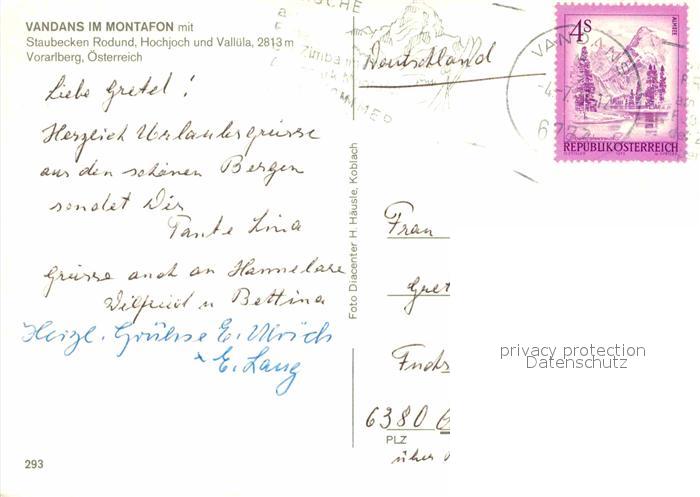 VANDANS IM MONTAFON mit
Staubecken Rodund, Hochjoch und Vallüla, 2813 m
Vorarlberg, Österreich
Liebe Gretel!
Herzlich Urlaubsgrüsse
aus den schönen Bergen
sendet Dir
Tante Lina
Grüsse auch an Hannelore
Wilfried u Bettina
Herzl. Grühse E. Ulrich
E. Lang
293
Foto Diacenter H. Häusle, Koblach
Deutschland
VANDANS
4S
ALMSEE
REPUBLIK ÖSTERREICH
Frau
Gret
Fuchs
6380
PLZ
über
privacy protection
Datenschutz